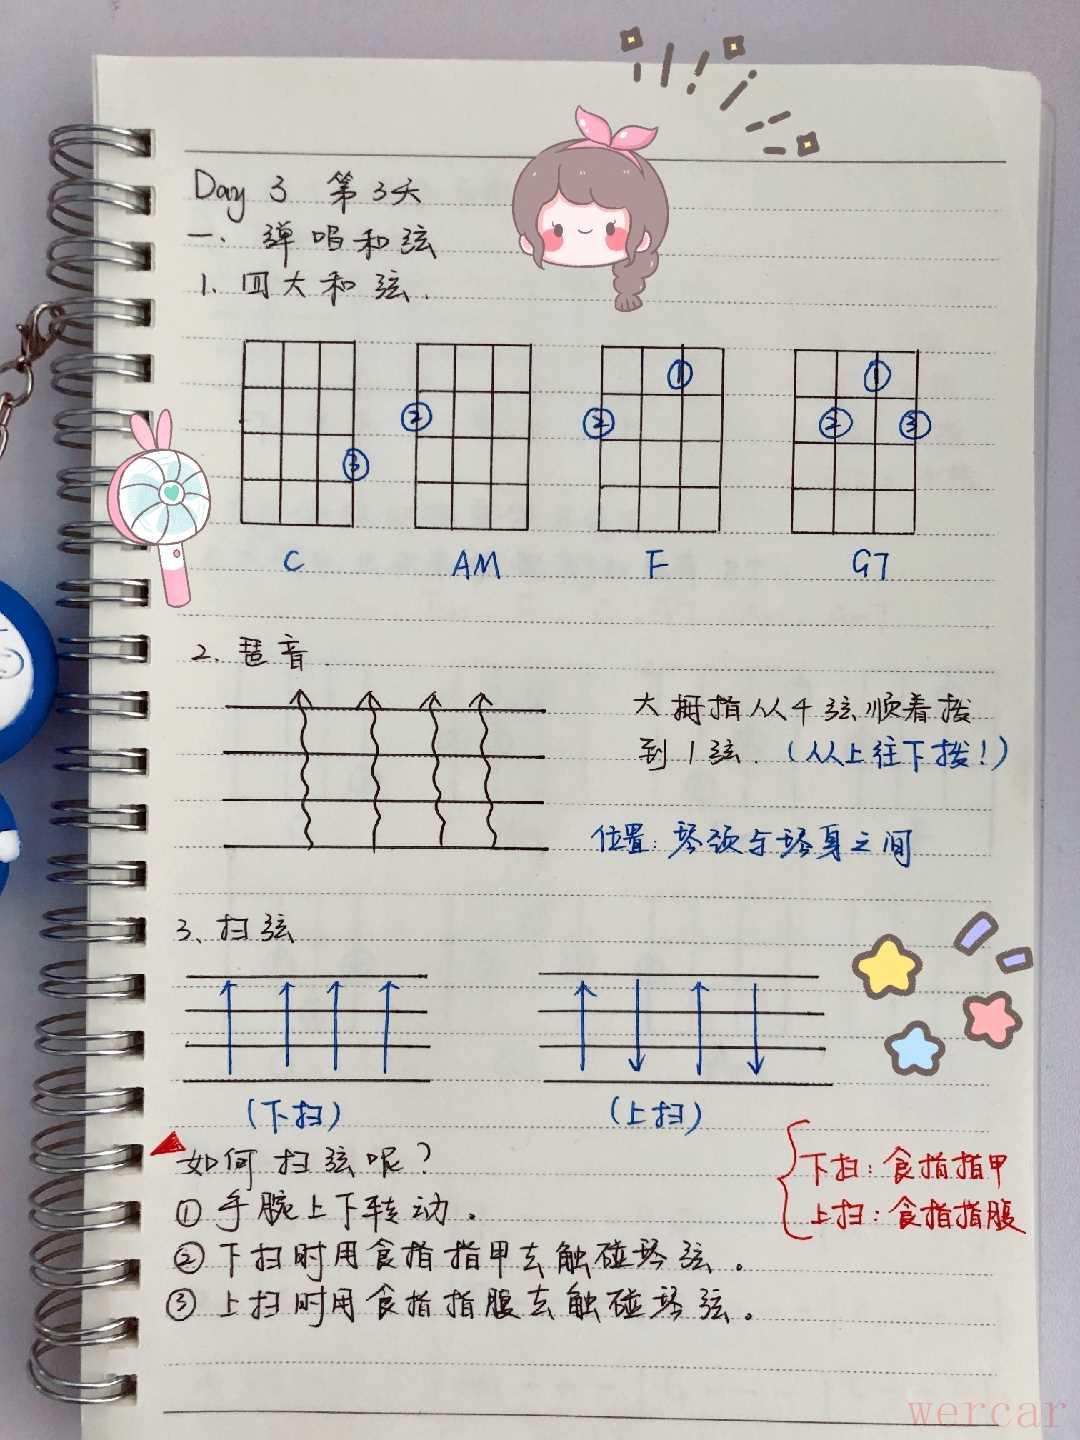 Day 3 第3天
一. 弹唱和弦
1. 四大和弦.
① ①
② ② ② ③
③
C AM F G7
2. 琶音.
大拇指从4弦顺着拨
到1弦.（从上往下拨!）
位置: 琴颈与琴身之间
3、扫弦
(下扫) (上扫)
如何扫弦呢?
下扫: 食指指甲
上扫: 食指指腹
① 手腕上下转动.
② 下扫时用食指指甲去触碰琴弦。
③ 上扫时用食指指腹去触碰琴弦。
wercar